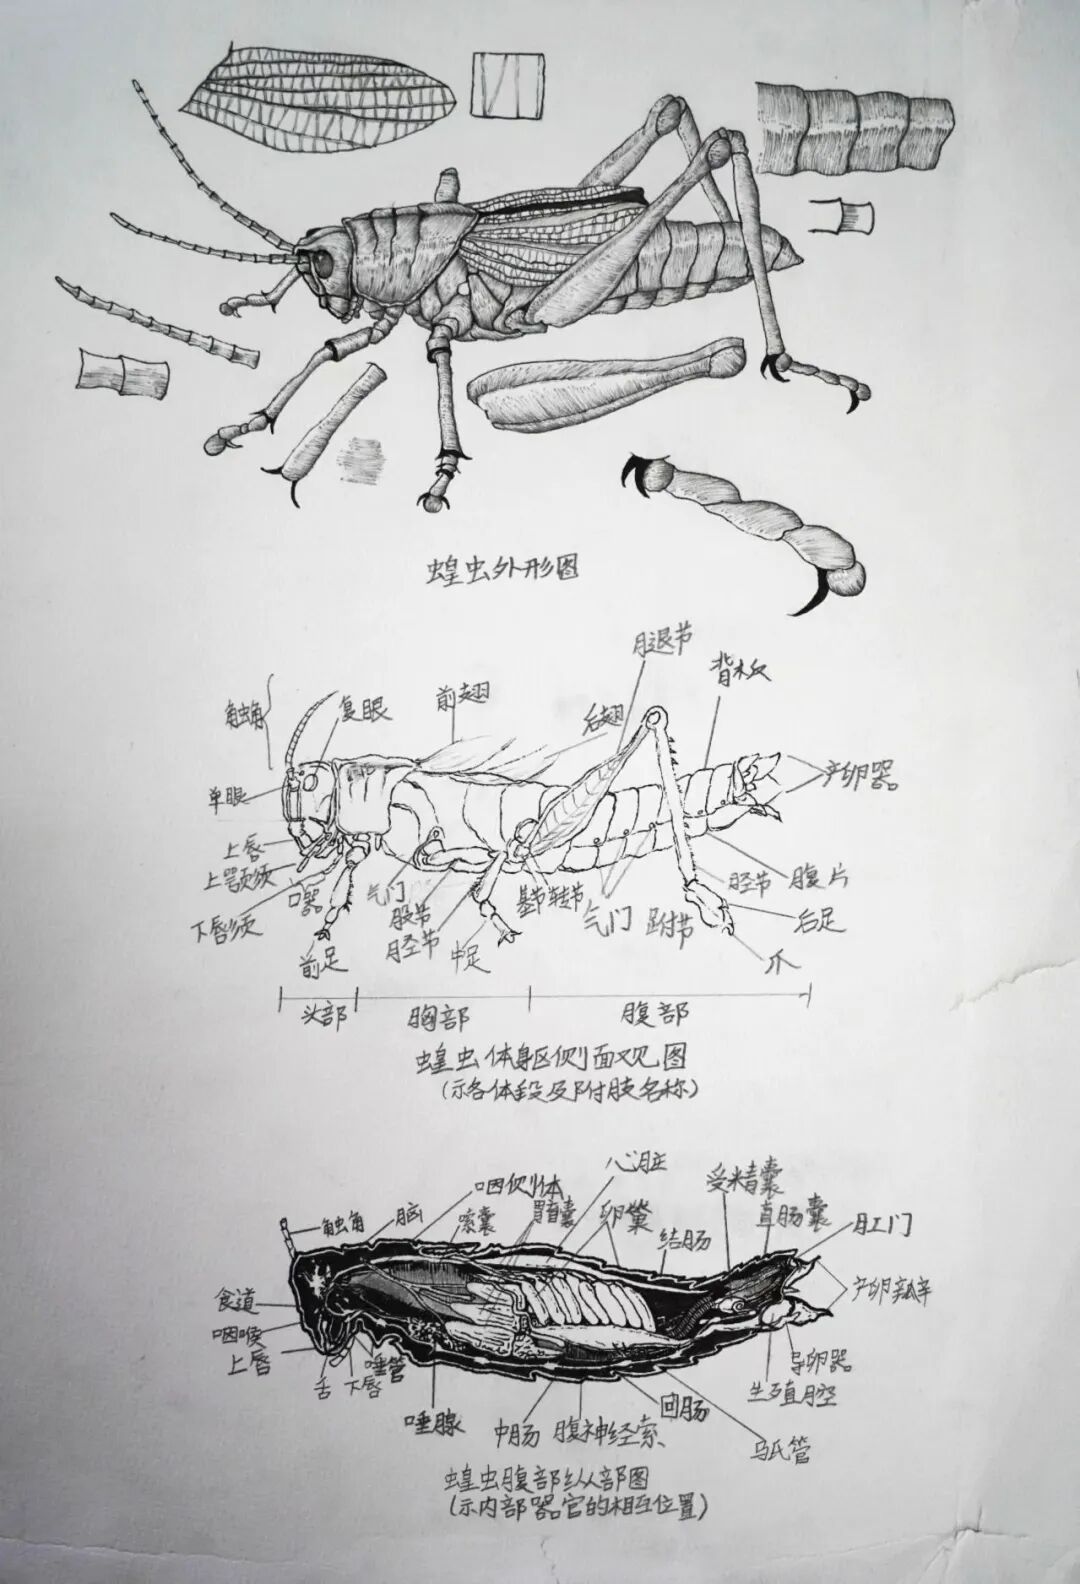 蝗虫外形图
腿节
背板
触角
复眼
前翅
后翅
产卵器
单眼
上唇
上颚须
下唇须
口器
气门
股节
胫节
中足
基节转节
气门
跗节
胫节
腹片
后足
爪
前足
头部
胸部
腹部
蝗虫体躯侧面观图
(示各体段及附肢名称)
心脏
咽侧体
受精囊
触角
脑
嗉囊
胃盲囊
卵巢
结肠
直肠囊
肛门
食道
产卵瓣
咽喉
上唇
舌
下唇
唾管
导卵器
生殖腔
唾腺
中肠
腹神经索
回肠
马氏管
蝗虫腹部纵部图
(示内部器官的相互位置)